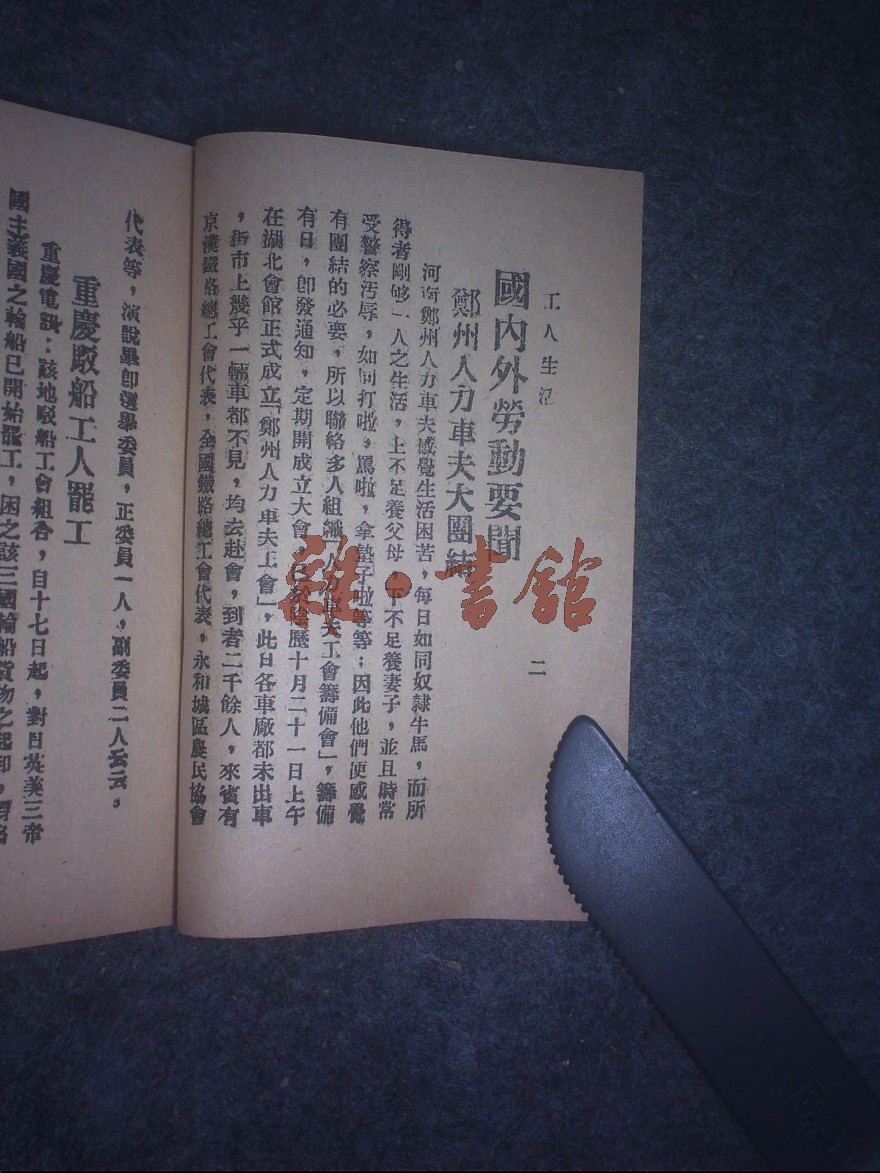 工人生活
二
國內外勞動要聞
鄭州人力車夫大團結
河南鄭州人力車夫感覺生活困苦，每日如同奴隸牛馬，而所
得者剛够一人之生活，上不足養父母，下不足養妻子，並且時常
受警察汚辱，如同打啦，罵啦，拿墊子啦等等；因此他們便感覺
有團結的必要，所以聯絡多人組織「人力車夫工會籌備會」，籌備
有日，卽發通知，定期開成立大會，陰歷十月二十一日上午
在湖北會館正式成立「鄭州人力車夫工會」，此日各車廠都未出車
，街市上幾乎一輛車都不見，均去赴會，到者二千餘人，來賓有
京漢鐵路總工會代表，全國鐵路總工會代表，永和城區農民協會
代表等，演說畢卽選舉委員，正委員一人，副委員二人云云，
重慶駁船工人罷工
重慶電訊：該地駁船工會組合，自十七日起，對日英美三帝
國主義國之輪船已開始罷工，因之該三國輪船貨物之起卸，
雜·書館